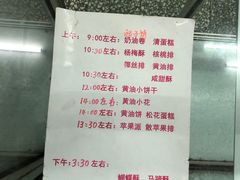 上午: 9:00左右: 奶油卷 清蛋糕
10:30左右: 杨梅酥 核桃排
椰丝排 黄油排
10:30左右: 咸甜酥
12:00左右: 黄油小饼干
14:00左右: 黄油小花
左右: 黄油饼 松花蛋糕
13:30左右: 苹果派 散苹果排
下午: 3:30左右:
蝴蝶酥 马蹄酥